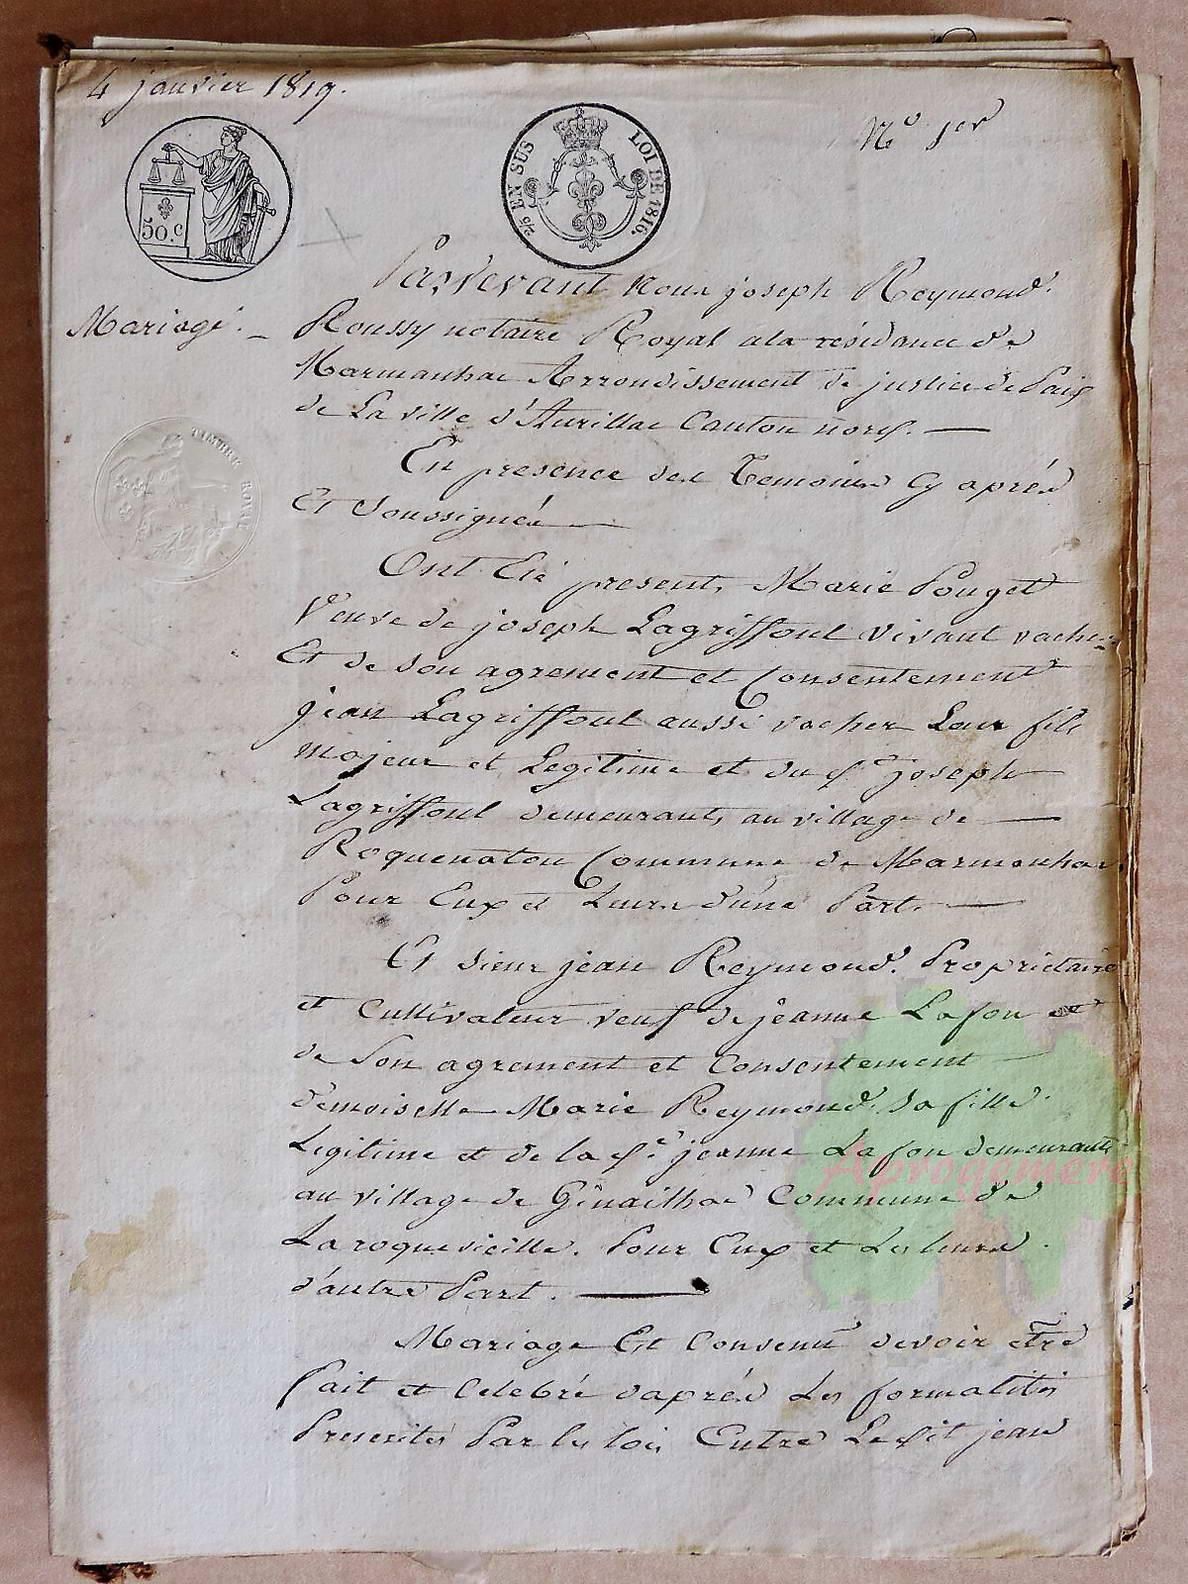 4 janvier 1819.
N.º 1er
50.c
2/5 EN SUS LOI DE 1816.
Mariagé. -
TIMBRE ROYAL
Pardevant Nous joseph Reymond.
Roussy notaire Royal ala résidance de
Marmanhac Arrondissement de justice de Paix
de La ville d'Aurillac Canton nord. —
En presence des Temoins Cy aprés
Et Soussignés —
Ont Eté present, Marie Pouget
Veuve de joseph Lagriffoul vivant vacher
Et de son agrement et Consentement
jean Lagriffoul aussi vacher Leur fils
majeur et Legitime et du d.t joseph
Lagriffoul demeurants au village de —
Roquenatou Commune de Marmanhac
Pour Eux et Leurs d'une Part. —
Et sieur jean Reymond. Propriétaire
et Cultivateur veuf de jeanne Lafon et
de Son agrement et Consentement —
demoiselle Marie Reymond. sa fille
Legitime et de la d.e jeanne Lafon demeurants
au village de Ginailhac Commune de
Laroquevieille. Pour Eux et Les leurs
d'autre Part. —
Mariage Est Convenu devoir être
fait et Celebré d'aprés Les formalités
Prescrites Par les lois, Entre Le dit jean
Aprogemere